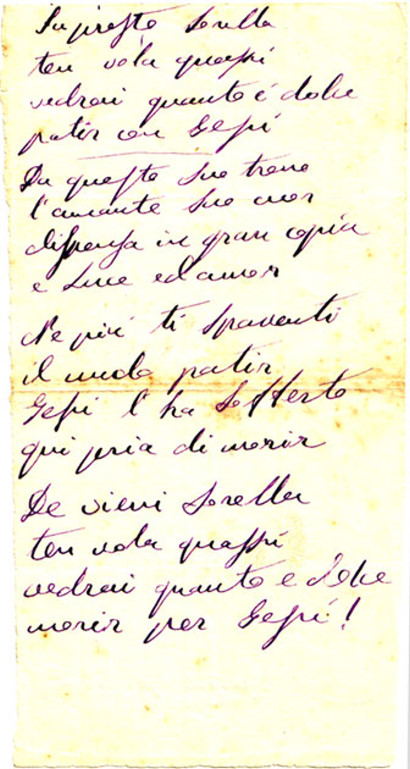 Su presto Sorella
ten vola quassú
vedrai quanto é dolce
patir con Gesú
Da questo suo trono
l'amante suo cuor
dispensa in gran copia
e luce ed amor
Ne piú ti spaventi
il nudo patir
Gesú l'ha Sofferto
qui pria di morir
De vieni Sorella
ten vola quassú
vedrai quanto e dolce
morir per Gesú!